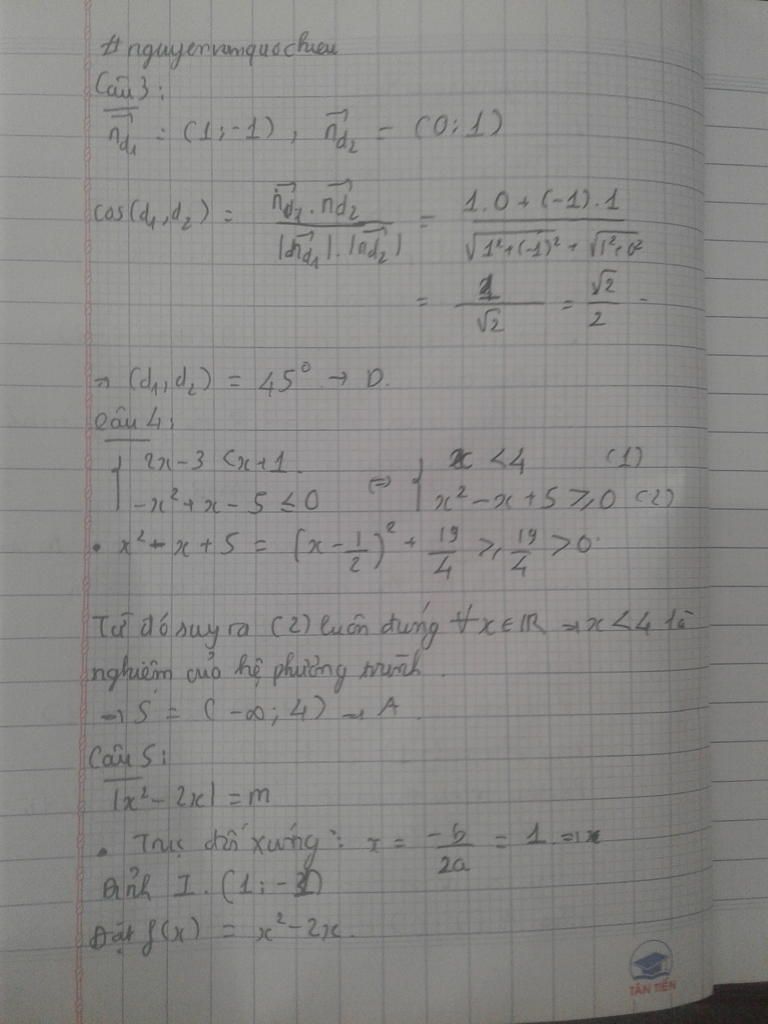 #nguyenvanquochieu
Câu 3:
n⃗d₁ = (1;-1), n⃗d₂ = (0;1)
cos(d₁,d₂) = n⃗d₁.n⃗d₂ / |n⃗d₁|.|n⃗d₂| = 1.0+(-1).1 / √1²+(-1)² + √1²+0²
= 1/√2 = √2/2
→ (d₁,d₂) = 45° → D.
Câu 4:
{ 2x-3 < x+1 ⇔ { x < 4 (1)
{ -x²+x-5 ≤ 0 { x²-x+5 ≥ 0 (2)
• x²-x+5 = (x-1/2)² + 19/4 ≥ 19/4 > 0
Từ đó suy ra (2) luôn đúng ∀x∈ℝ → x < 4 là
nghiệm của hệ phương trình.
→ S = (-∞;4) → A.
Câu 5:
|x²-2x| = m
• Trục đối xứng: x = -b/2a = 1 ⇒
Đỉnh I (1;-1)
Đặt f(x) = x²-2x.
TÂN TIẾN